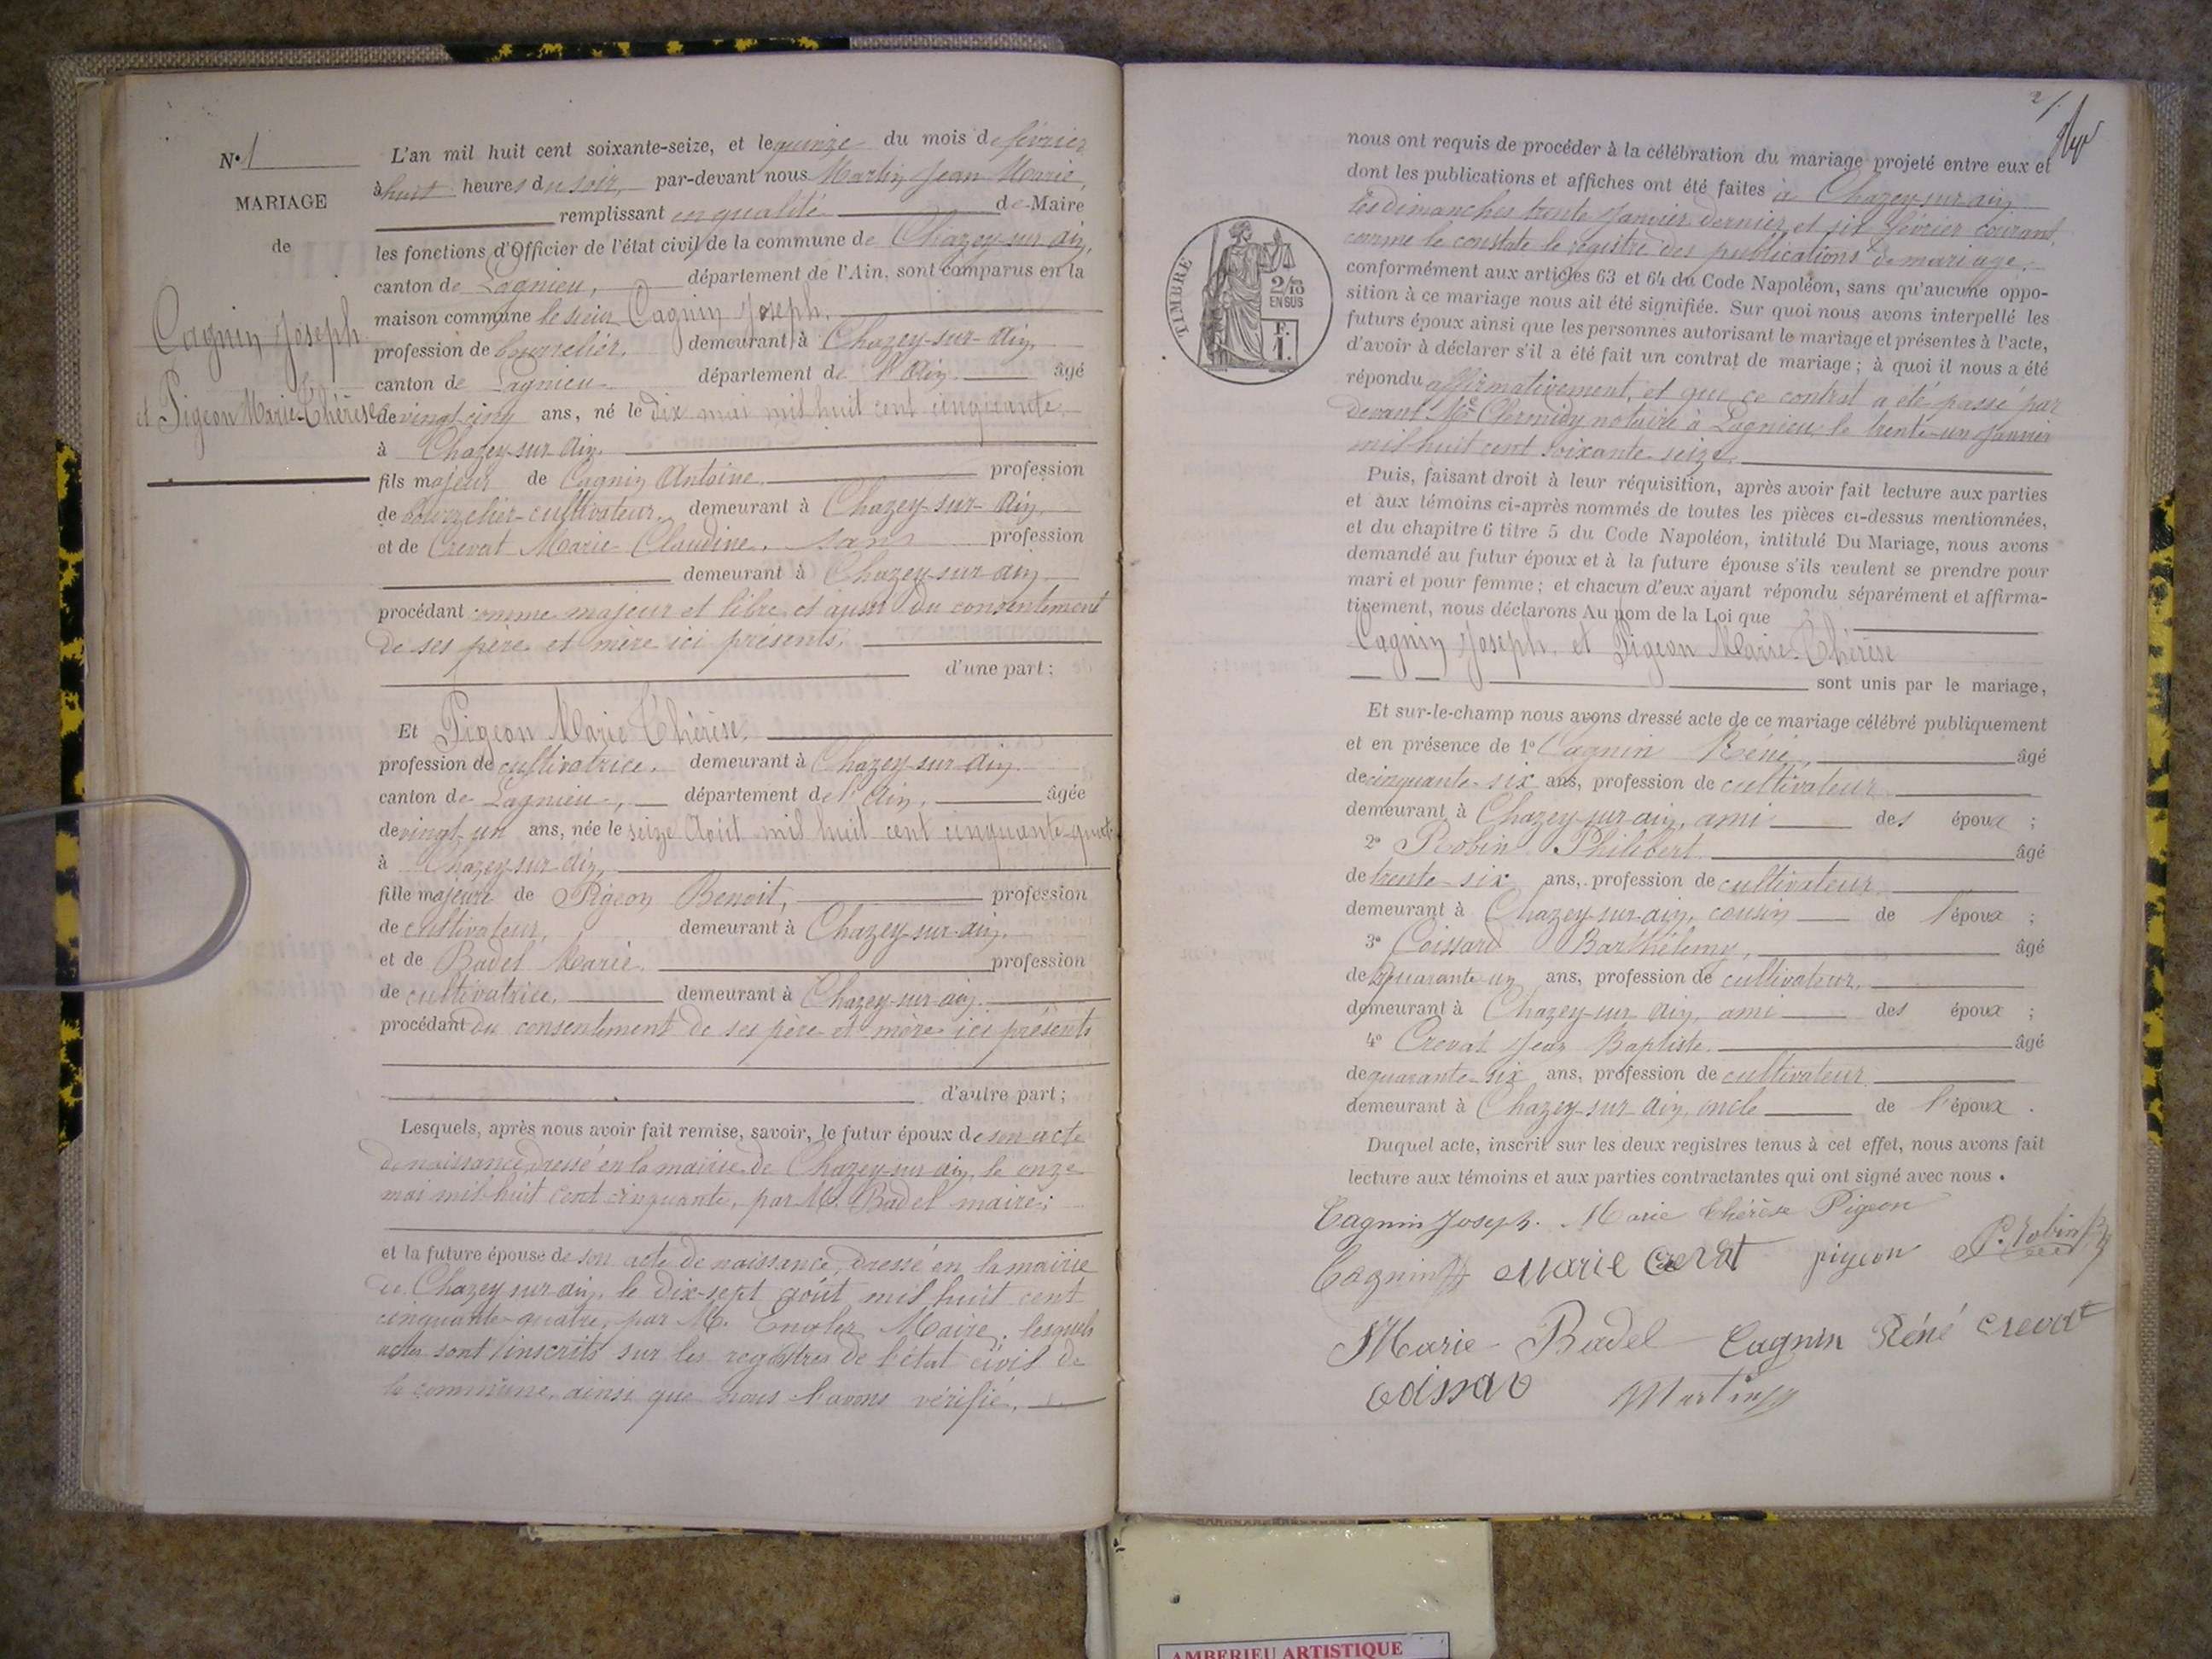 N° 1
MARIAGE
de
Cagnin Joseph
et Pigeon Marie-Thérèse
L'an mil huit cent soixante-seize, et le quinze du mois de février
à huit heures du soir, par-devant nous Martin Jean Marie,
remplissant en qualité de Maire
les fonctions d'Officier de l'état civil de la commune de Chazey-sur-Ain,
canton de Lagnieu, département de l'Ain, sont comparus en la
maison commune le sieur Cagnin Joseph,
profession de bourrelier, demeurant à Chazey-sur-Ain,
canton de Lagnieu département de l'Ain âgé
de vingt-cinq ans, né le dix mai mil huit cent cinquante,
à Chazey-sur-Ain,
fils majeur de Cagnin Antoine profession
de bourrelier-cultivateur, demeurant à Chazey-sur-Ain,
et de Crevat Marie Claudine, sans profession
demeurant à Chazey-sur-ain
procédant comme majeur et libre, et aussi du consentement
de ses père et mère ici présents,
d'une part ;
Et Pigeon Marie Thérèse,
profession de cultivatrice, demeurant à Chazey-sur-ain
canton de Lagnieu, département de l'Ain, âgée
de vingt-un ans, née le seize Août mil huit cent cinquante-quat
à Chazey-sur-ain,
fille majeure de Pigeon Benoit, profession
de cultivateur, demeurant à Chazey-sur-ain,
et de Badel Marie profession
de cultivatrice, demeurant à Chazey-sur-ain,
procédant du consentement de ses père et mère ici présents
d'autre part ;
Lesquels, après nous avoir fait remise, savoir, le futur époux de son acte
de naissance dressé en la mairie de Chazey-sur-ain, le onze
mai mil huit cent cinquante, par M. Badel maire ;
et la future épouse de son acte de naissance, dressé en la mairie
de Chazey-sur-ain, le dix-sept août mil huit cent
cinquante-quatre, par M. Maire, lesquels
actes sont inscrits sur les registres de l'état civil de
la commune, ainsi que nous l'avons vérifié,
2/
nous ont requis de procéder à la célébration du mariage projeté entre eux et
dont les publications et affiches ont été faites à Chazey-sur-ain
les dimanches trente Janvier dernier, et six février courant,
comme le constate le registre des publications de mariage,
conformément aux articles 63 et 64 du Code Napoléon, sans qu'aucune oppo-
sition à ce mariage nous ait été signifiée. Sur quoi nous avons interpellé les
futurs époux ainsi que les personnes autorisant le mariage et présentes à l'acte,
d'avoir à déclarer s'il a été fait un contrat de mariage ; à quoi il nous a été
répondu affirmativement, et que ce contrat a été passé par
devant Me Chermidy notaire à Lagnieu, le trente-un Janvier
mil huit cent soixante-seize.
TIMBRE
2/10
EN SUS
F.
1.
Puis, faisant droit à leur réquisition, après avoir fait lecture aux parties
et aux témoins ci-après nommés de toutes les pièces ci-dessus mentionnées,
et du chapitre 6 titre 5 du Code Napoléon, intitulé Du Mariage, nous avons
demandé au futur époux et à la future épouse s'ils veulent se prendre pour
mari et pour femme ; et chacun d'eux ayant répondu séparément et affirma-
tivement, nous déclarons Au nom de la Loi que
Cagnin Joseph, et Pigeon Marie-Thérèse
sont unis par le mariage,
Et sur-le-champ nous avons dressé acte de ce mariage célébré publiquement
et en présence de 1° Cagnin Réné, âgé
de cinquante-six ans, profession de cultivateur
demeurant à Chazey-sur-ain, ami des époux ;
2° Robin Philibert âgé
de trente-six ans, profession de cultivateur
demeurant à Chazey-sur-ain, cousin de l'époux ;
3° Coissard Barthélemy, âgé
de quarante-un ans, profession de cultivateur,
demeurant à Chazey-sur-Ain, ami des époux ;
4° Crevat Jean Baptiste, âgé
de quarante-six ans, profession de cultivateur
demeurant à Chazey-sur-Ain, oncle de l'époux .
Duquel acte, inscrit sur les deux registres tenus à cet effet, nous avons fait
lecture aux témoins et aux parties contractantes qui ont signé avec nous .
Cagnin Joseph. Marie Thérèse Pigeon
Cagnin Marie Crevat pigeon P. Robin
Marie Badel Cagnin Réné crevat
Martin
AMBERIEU ARTISTIQUE